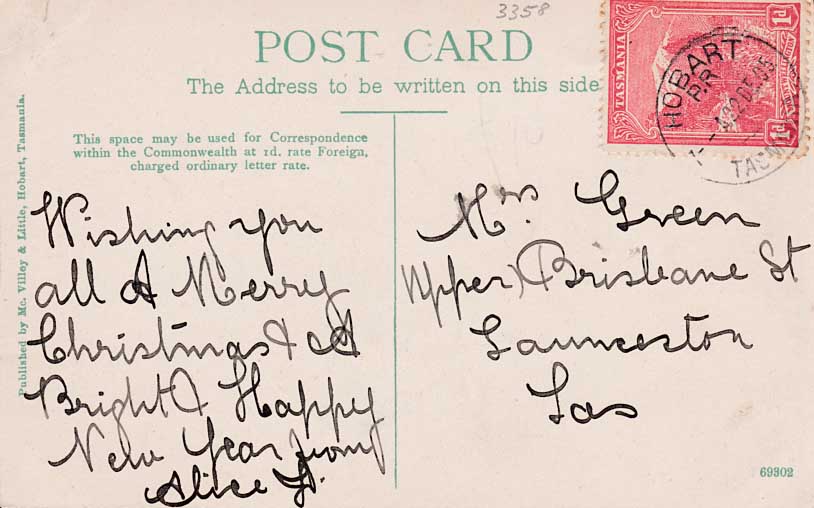 3358
POST CARD
The Address to be written on this side
TASMANIA
1d
1d
HOBART
TASM
Published by Mc. Villey & Little, Hobart, Tasmania.
This space may be used for Correspondence
within the Commonwealth at 1d. rate Foreign,
charged ordinary letter rate.
Wishing you
all A Merry
Christmas & A
Bright & Happy
New Year from
Alice
Mrs Green
Upper) Brisbane St
Launceston
Tas
69302